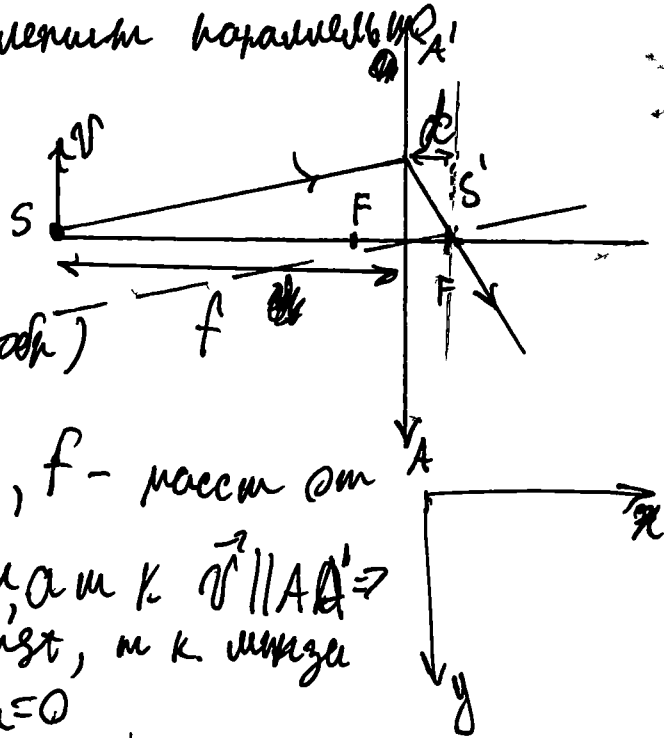 параллельно
A'
V
d
S
F
S'
F
f
A
, f - расст от
x
, а т к. V || AA' =>
, т к. линза
=0
y